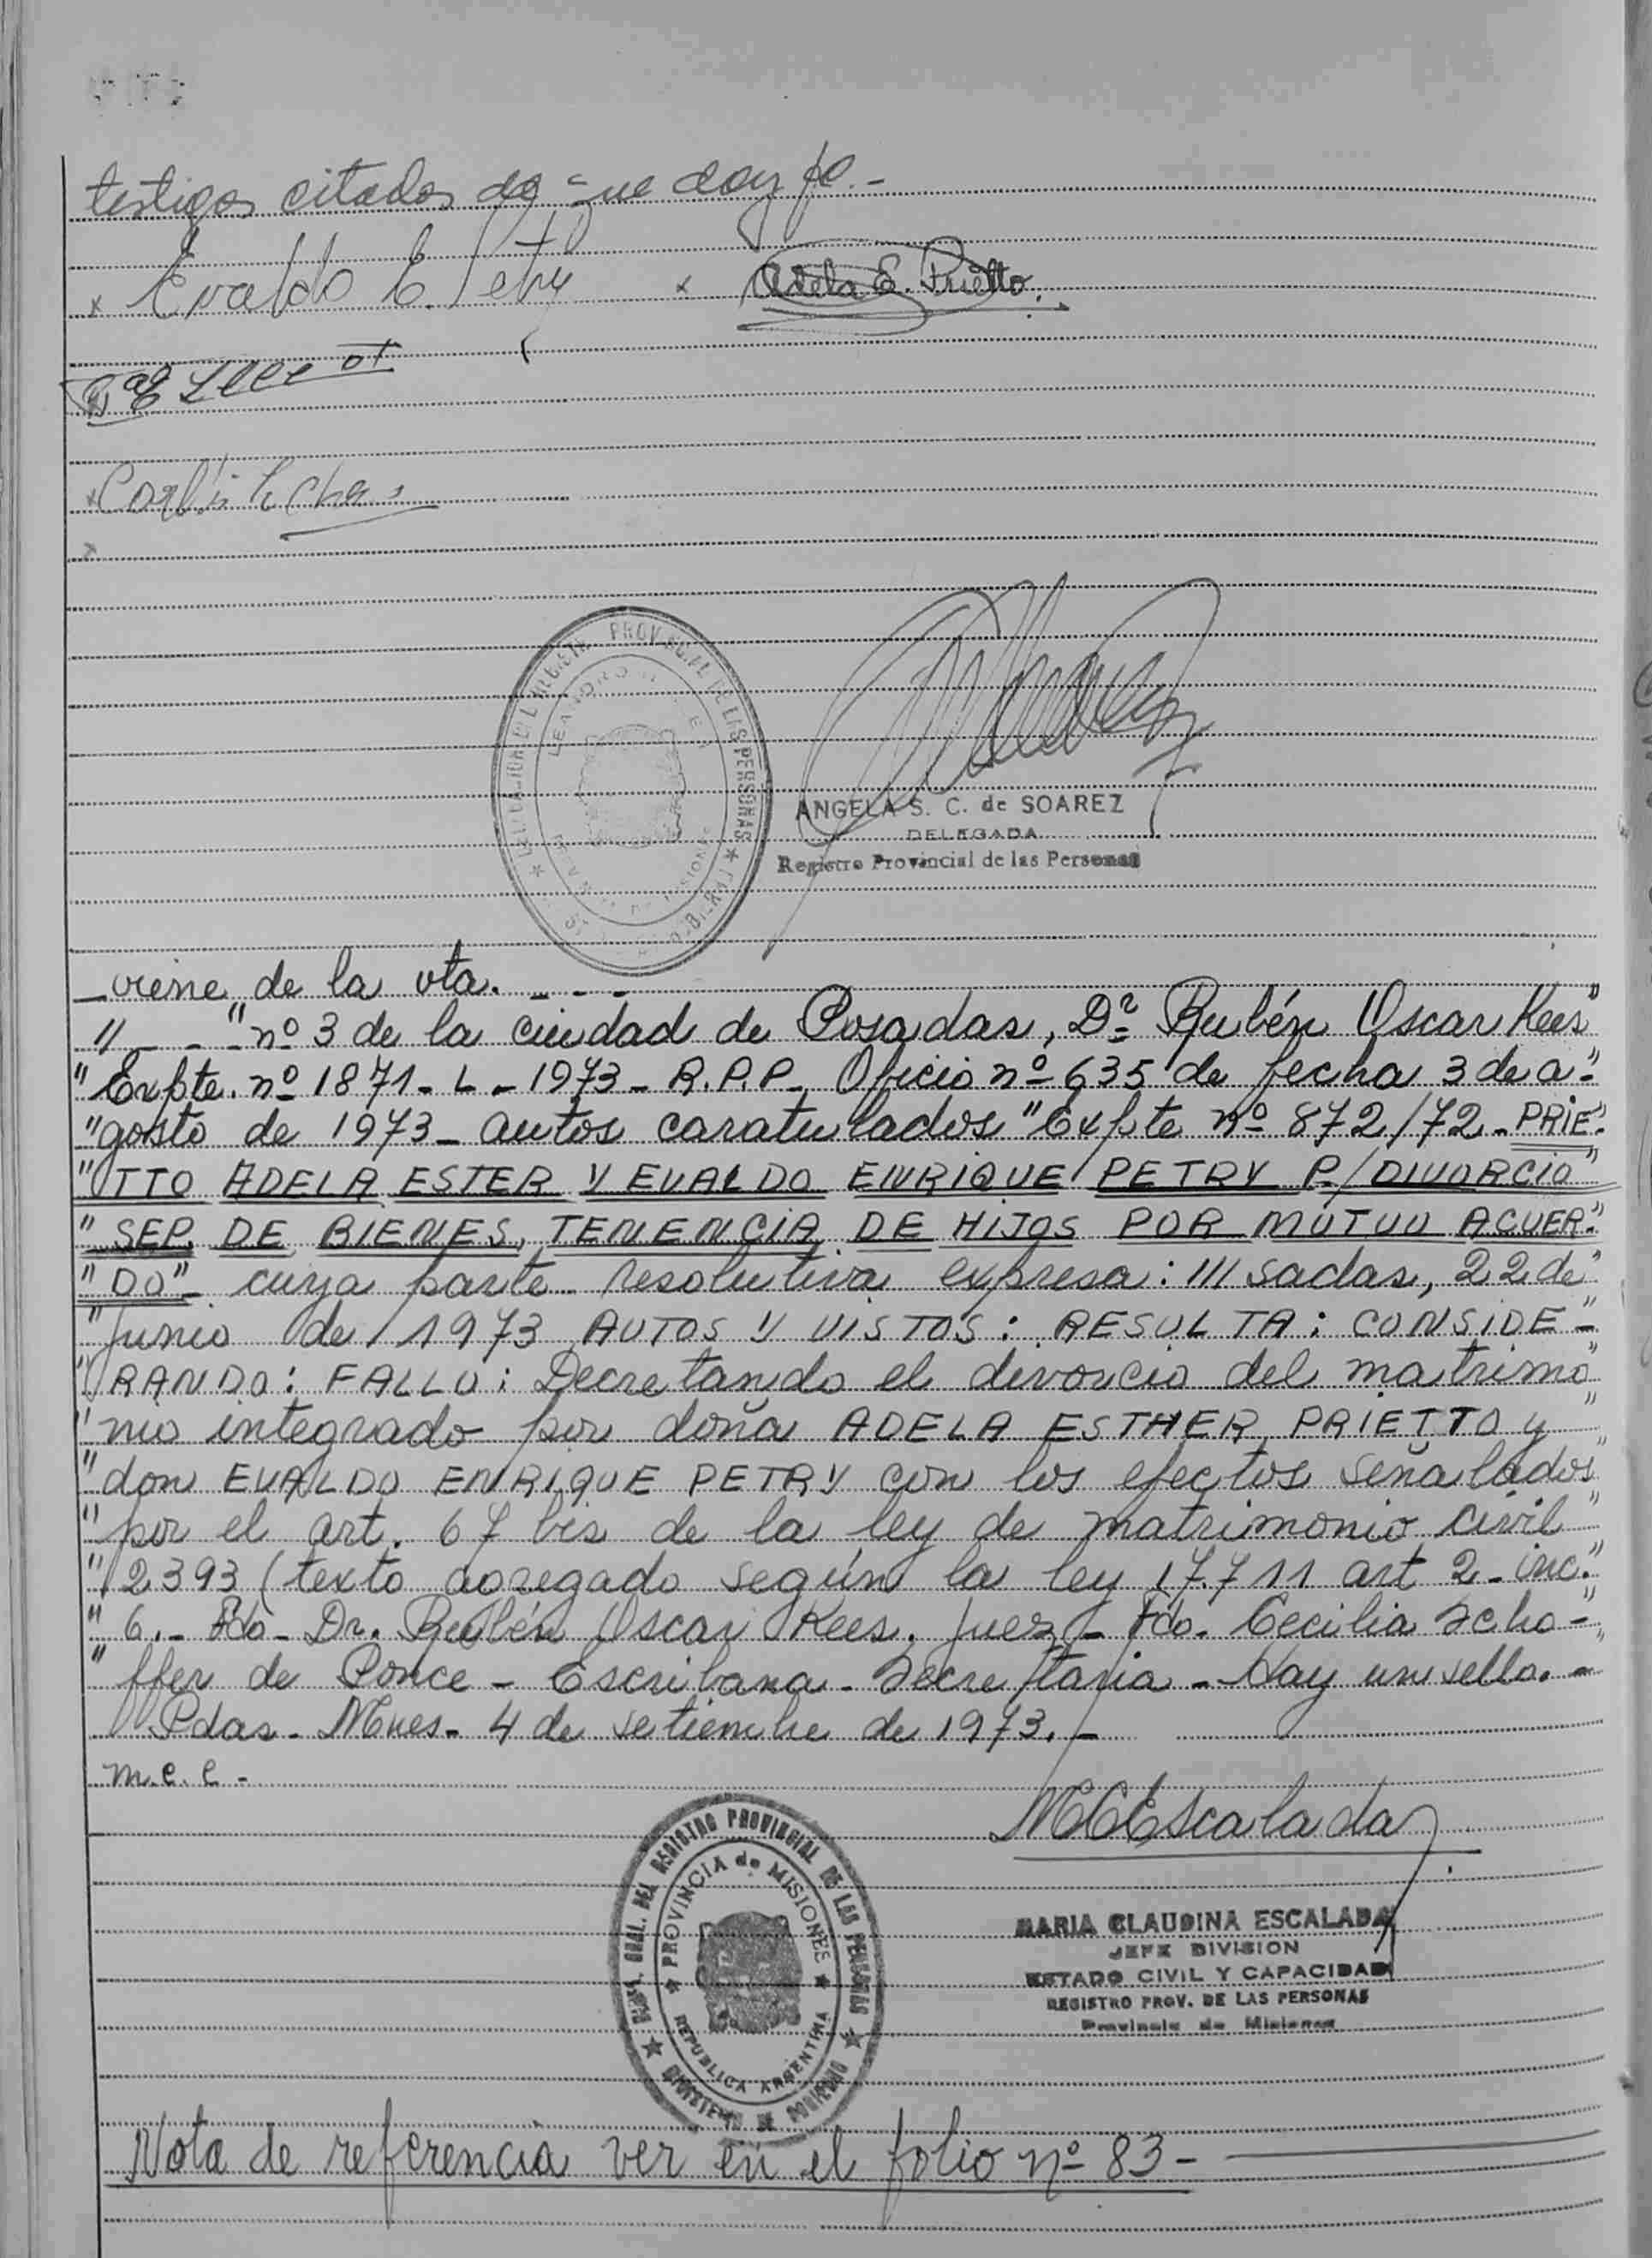 testigos citados de que doy fe.-
x Evaldo E. Petry x Adela E. Prietto.
x
x
LEANDRO N.
PROVINCIAL DE LAS PERSONAS
ANGELA S. C. de SOAREZ
DELEGADA
Registro Provincial de las Personas
_viene de la vta. - - -
" - - - "nº 3 de la ciudad de Posadas, Dr. Rubén Oscar Kees"
"Expte. nº 1871-L-1973-R.P.P. Oficio nº 635 de fecha 3 de a-"
"gosto de 1973- autos caratulados "Expte nº 872/72-PRIE-"
"TTO ADELA ESTER Y EVALDO ENRIQUE PETRY P/DIVORCIO"
"SEP. DE BIENES, TENENCIA DE HIJOS POR MÚTUO ACUER-"
"DO"- cuya parte resolutiva expresa: ///sadas, 22 de"
"junio de 1973 AUTOS Y VISTOS: RESULTA: CONSIDE-"
"RANDO: FALLO: Decretando el divorcio del matrimo"
"nio integrado por doña ADELA ESTHER PRIETTO y"
"don EVALDO ENRIQUE PETRY con los efectos señalados"
"por el art. 67 bis de la ley de matrimonio civil"
"2393 (texto agregado según la ley 17.711 art 2-inc."
"6.- Fdo- Dr. Rubén Oscar Kees. Juez- Fdo. Cecilia Scho-"
"ffer de Ponce - Escribana - Secretaria - Hay un sello.-
Pdas- Mnes- 4 de setiembre de 1973.-
m.c.e-
MCEscalada
DIRECC. GRAL. DEL REGISTRO PROVINCIAL DE LAS PERSONAS
PROVINCIA de MISIONES
REPUBLICA ARGENTINA
MINISTERIO DE GOBIERNO
MARIA CLAUDINA ESCALADA
JEFE DIVISION
ESTADO CIVIL Y CAPACIDAD
REGISTRO PROV. DE LAS PERSONAS
Provincia de Misiones
Nota de referencia ver en el folio nº 83-